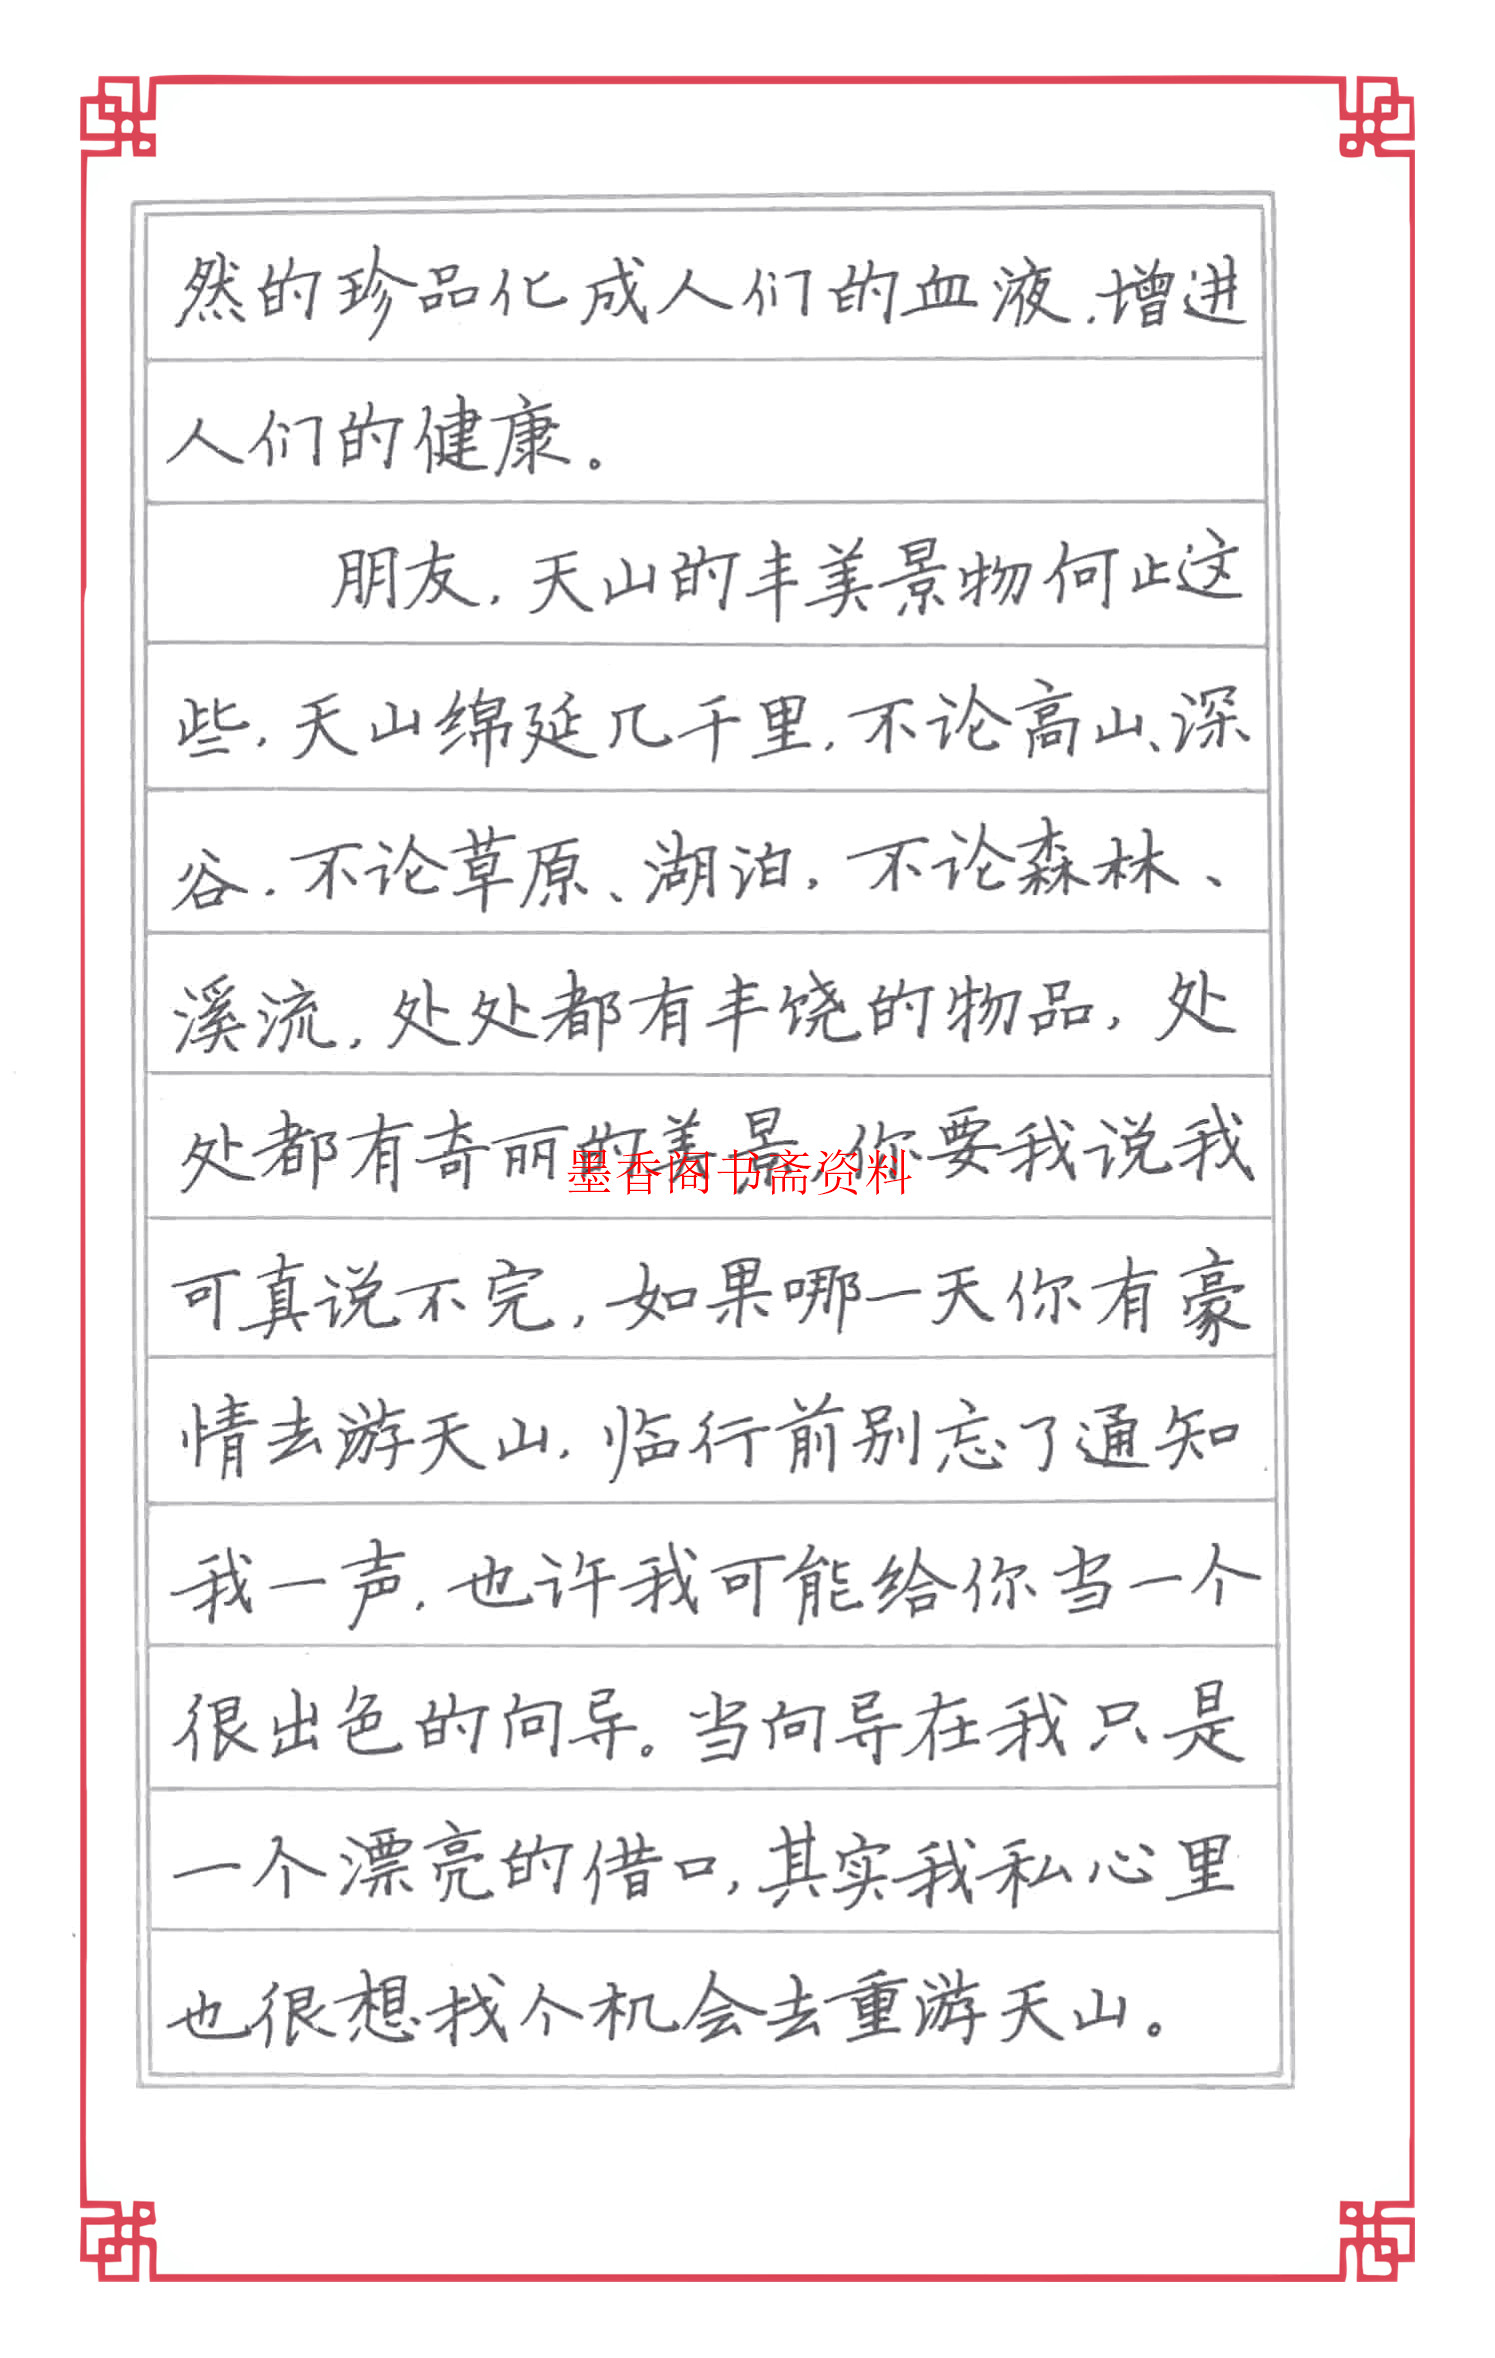 然的珍品化成人们的血液，增进
人们的健康。
朋友，天山的丰美景物何止这
些，天山绵延几千里，不论高山、深
谷，不论草原、湖泊，不论森林、
溪流，处处都有丰饶的物品，处
处都有奇丽的美景，你要我说我
墨香阁书斋资料
可真说不完，如果哪一天你有豪
情去游天山，临行前别忘了通知
我一声，也许我可能给你当一个
很出色的向导。当向导在我只是
一个漂亮的借口，其实我私心里
也很想找个机会去重游天山。